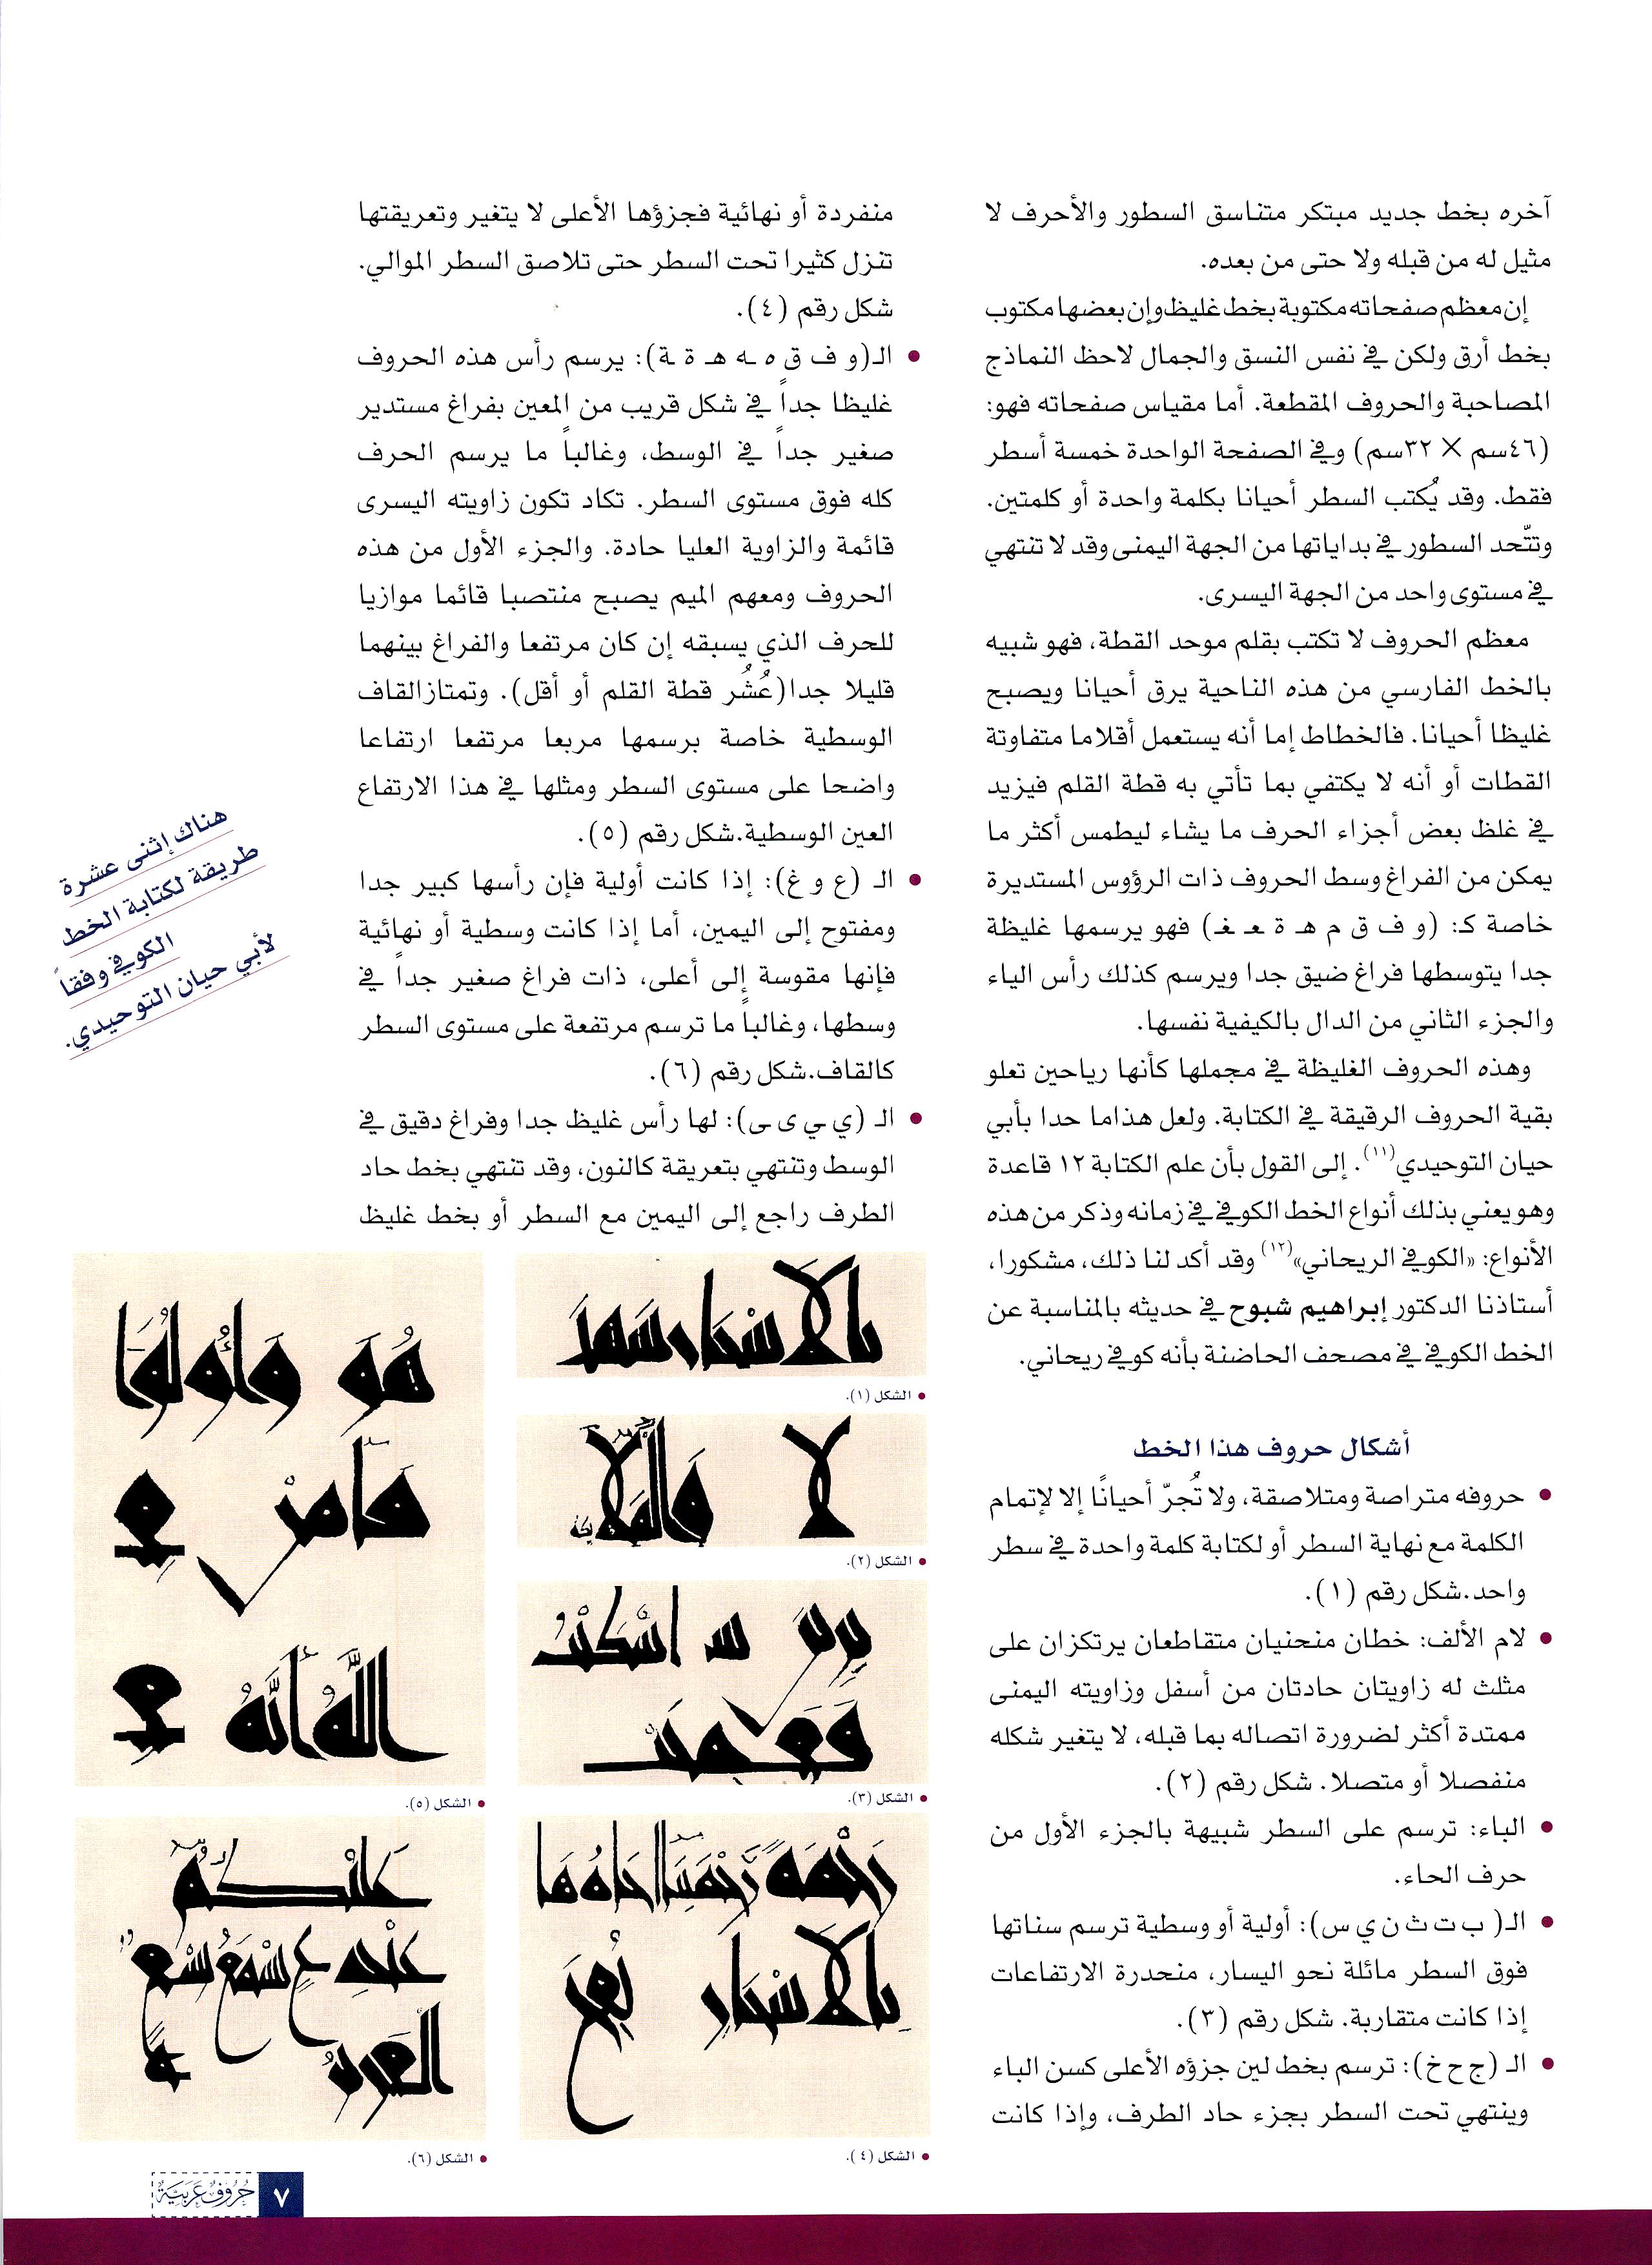 آخره بخط جديد مبتكر متناسق السطور والأحرف لا
مثيل له من قبله ولا حتى من بعده.
إن معظم صفحاته مكتوبة بخط غليظ وإن بعضها مكتوب
بخط أرق ولكن في نفس النسق والجمال لاحظ النماذج
المصاحبة والحروف المقطعة. أما مقياس صفحاته فهو:
(٤٦سم × ٣٢سم) وفي الصفحة الواحدة خمسة أسطر
فقط. وقد يُكتب السطر أحيانا بكلمة واحدة أو كلمتين.
وتتّحد السطور في بداياتها من الجهة اليمنى وقد لا تنتهي
في مستوى واحد من الجهة اليسرى.
معظم الحروف لا تكتب بقلم موحد القطة، فهو شبيه
بالخط الفارسي من هذه الناحية يرق أحيانا ويصبح
غليظا أحيانا. فالخطاط إما أنه يستعمل أقلاما متفاوتة
القطات أو أنه لا يكتفي بما تأتي به قطة القلم فيزيد
في غلظ بعض أجزاء الحرف ما يشاء ليطمس أكثر ما
يمكن من الفراغ وسط الحروف ذات الرؤوس المستديرة
خاصة كـ: (و ف ق م هـ ة ـعـ غـ) فهو يرسمها غليظة
جدا يتوسطها فراغ ضيق جدا ويرسم كذلك رأس الياء
والجزء الثاني من الدال بالكيفية نفسها.
وهذه الحروف الغليظة في مجملها كأنها رياحين تعلو
بقية الحروف الرقيقة في الكتابة. ولعل هذاما حدا بأبي
حيان التوحيدي(١١). إلى القول بأن علم الكتابة ١٢ قاعدة
وهو يعني بذلك أنواع الخط الكوفي في زمانه وذكر من هذه
الأنواع: «الكوفي الريحاني»(١٢) وقد أكد لنا ذلك، مشكورا،
أستاذنا الدكتور إبراهيم شبوح في حديثه بالمناسبة عن
الخط الكوفي في مصحف الحاضنة بأنه كوفي ريحاني.
أشكال حروف هذا الخط
• حروفه متراصة ومتلاصقة، ولا تُجرّ أحيانًا إلا لإتمام
الكلمة مع نهاية السطر أو لكتابة كلمة واحدة في سطر
واحد.شكل رقم (١).
• لام الألف: خطان منحنيان متقاطعان يرتكزان على
مثلث له زاويتان حادتان من أسفل وزاويته اليمنى
ممتدة أكثر لضرورة اتصاله بما قبله، لا يتغير شكله
منفصلا أو متصلا. شكل رقم (٢).
• الباء: ترسم على السطر شبيهة بالجزء الأول من
حرف الحاء.
• الـ( ب ت ث ن ي س): أولية أو وسطية ترسم سناتها
فوق السطر مائلة نحو اليسار، منحدرة الارتفاعات
إذا كانت متقاربة. شكل رقم (٣).
• الـ (ج ح خ): ترسم بخط لين جزؤه الأعلى كسن الباء
وينتهي تحت السطر بجزء حاد الطرف، وإذا كانت
منفردة أو نهائية فجزؤها الأعلى لا يتغير وتعريقتها
تنزل كثيرا تحت السطر حتى تلاصق السطر الموالي.
شكل رقم (٤).
• الـ(و ف ق ه ـه هـ ة ـة): يرسم رأس هذه الحروف
غليظا جداً في شكل قريب من المعين بفراغ مستدير
صغير جداً في الوسط، وغالباً ما يرسم الحرف
كله فوق مستوى السطر. تكاد تكون زاويته اليسرى
قائمة والزاوية العليا حادة. والجزء الأول من هذه
الحروف ومعهم الميم يصبح منتصبا قائما موازيا
للحرف الذي يسبقه إن كان مرتفعا والفراغ بينهما
قليلا جدا(عُشُر قطة القلم أو أقل). وتمتازالقاف
الوسطية خاصة برسمها مربعا مرتفعا ارتفاعا
واضحا على مستوى السطر ومثلها في هذا الارتفاع
العين الوسطية.شكل رقم (٥).
• الـ (ع و غ): إذا كانت أولية فإن رأسها كبير جدا
ومفتوح إلى اليمين، أما إذا كانت وسطية أو نهائية
فإنها مقوسة إلى أعلى، ذات فراغ صغير جداً في
وسطها، وغالباً ما ترسم مرتفعة على مستوى السطر
كالقاف.شكل رقم (٦).
• الـ (ي ـي ى ـى): لها رأس غليظ جدا وفراغ دقيق في
الوسط وتنتهي بتعريقة كالنون، وقد تنتهي بخط حاد
الطرف راجع إلى اليمين مع السطر أو بخط غليظ
هناك إثنى عشرة
طريقة لكتابة الخط
الكوفي وفقاً
لأبي حيان التوحيدي.
• الشكل (١).
لا
• الشكل (٢).
• الشكل (٣).
• الشكل (٤).
هُوَ
• الشكل (٥).
• الشكل (٦).
٧
حُرُوفٌ عَرَبِيَّةٌ